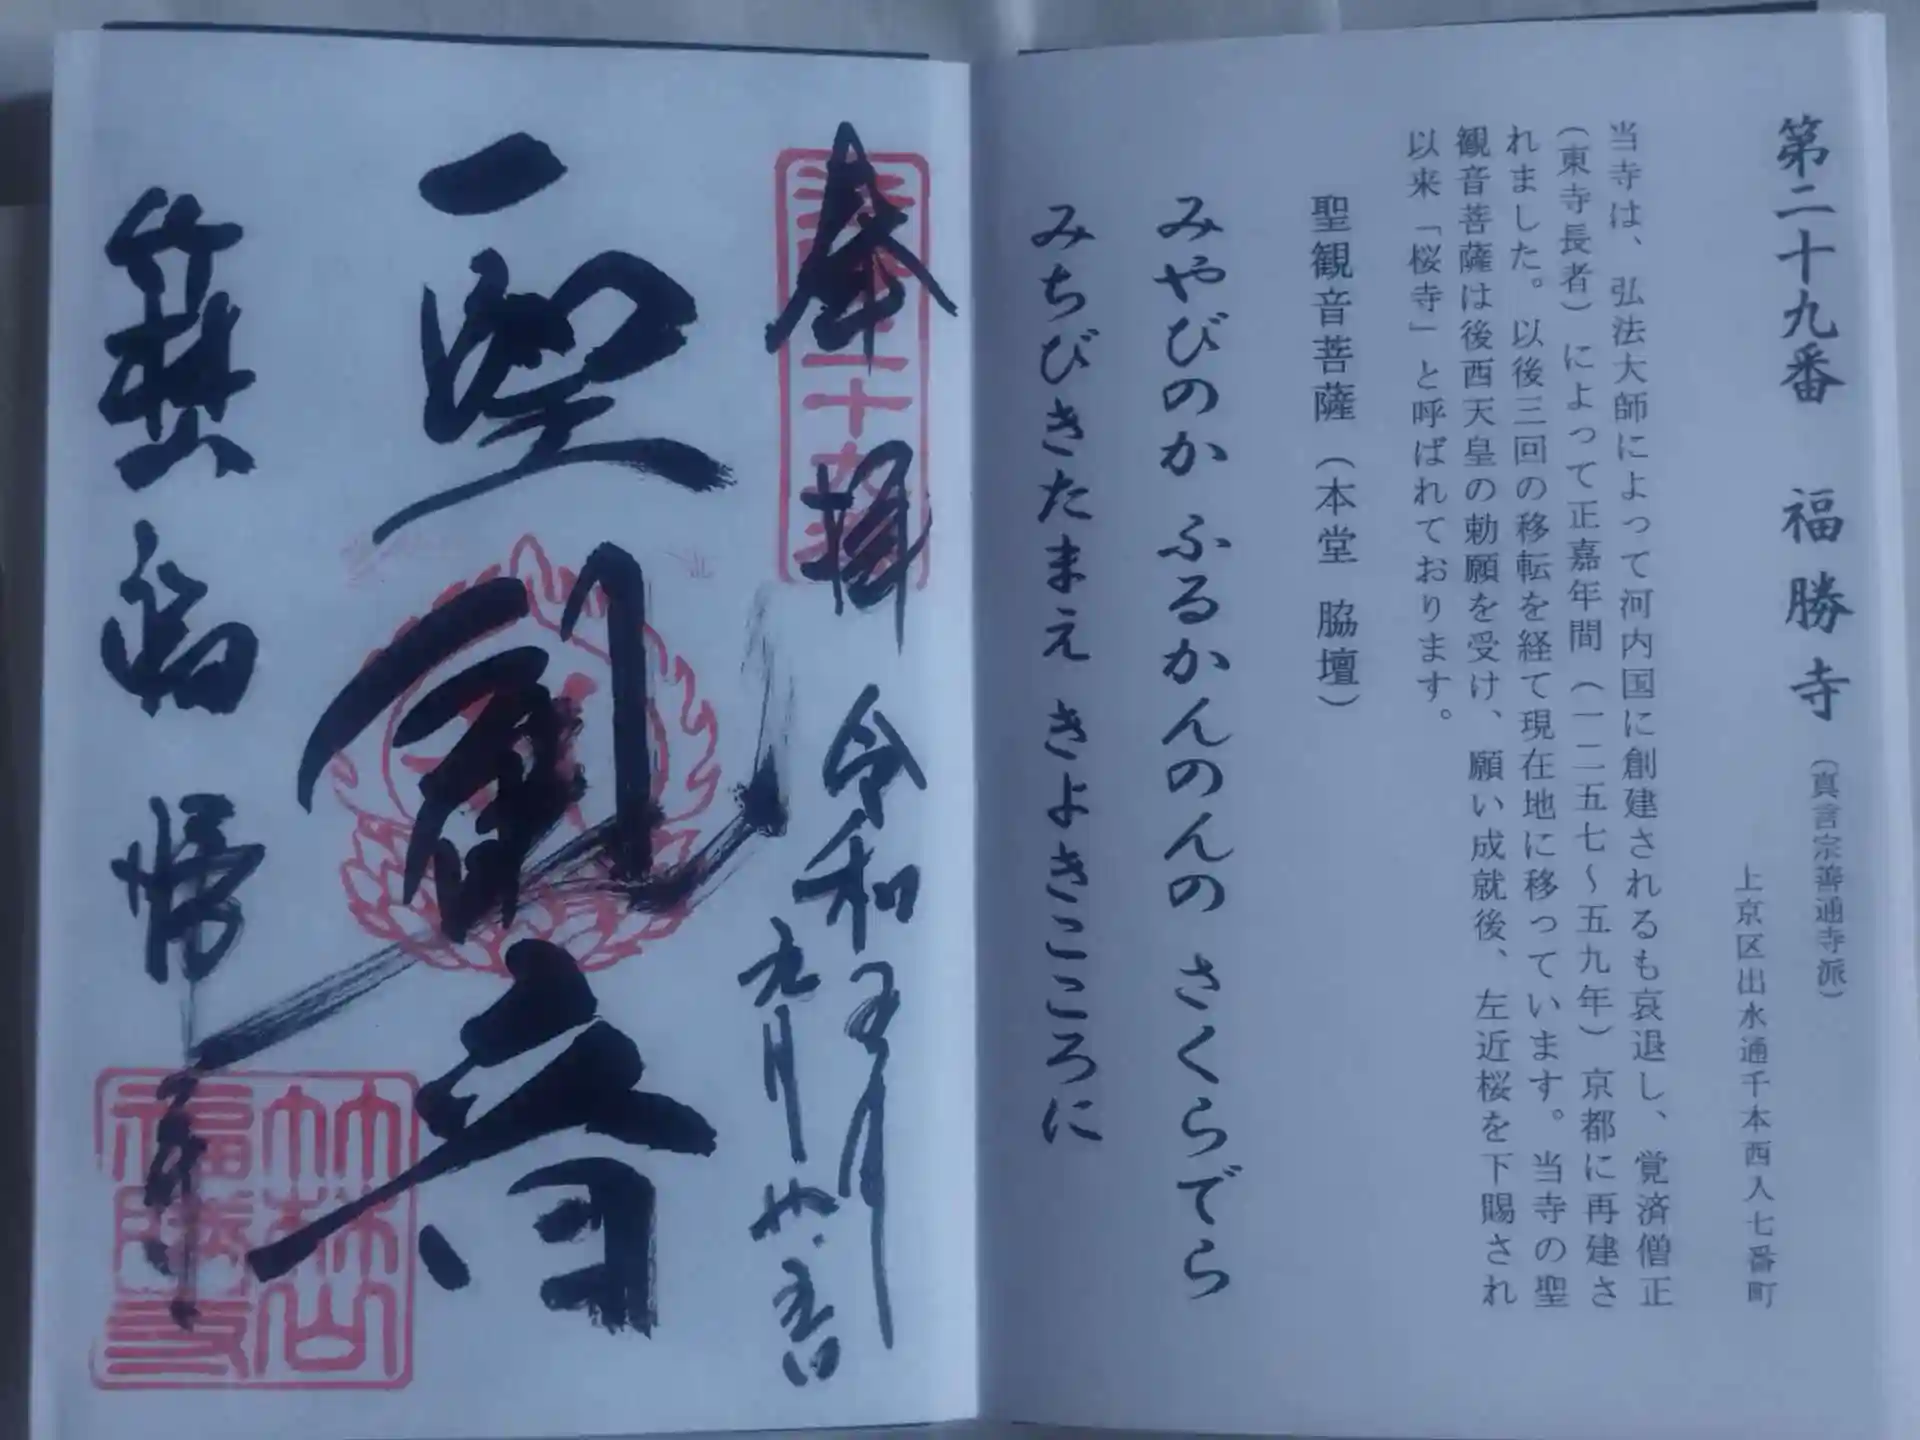 第二十九番 福勝寺（真言宗善通寺派）
上京区出水通千本西入七番町
当寺は、弘法大師によって河内国に創建されるも哀退し、覚済僧正
（東寺長者）によって正嘉年間（一二五七～五九年）京都に再建さ
れました。以後三回の移転を経て現在地に移っています。当寺の聖
観音菩薩は後西天皇の勅願を受け、願い成就後、左近桜を下賜され
以来「桜寺」と呼ばれております。
聖観音菩薩（本堂 脇壇）
みやびのか ふるかんのんの さくらでら
みちびきたまえ きよきこころに
奉拝 令和五年
九月廿五日
聖観音
竹林山 福勝寺
竹林山
福勝寺